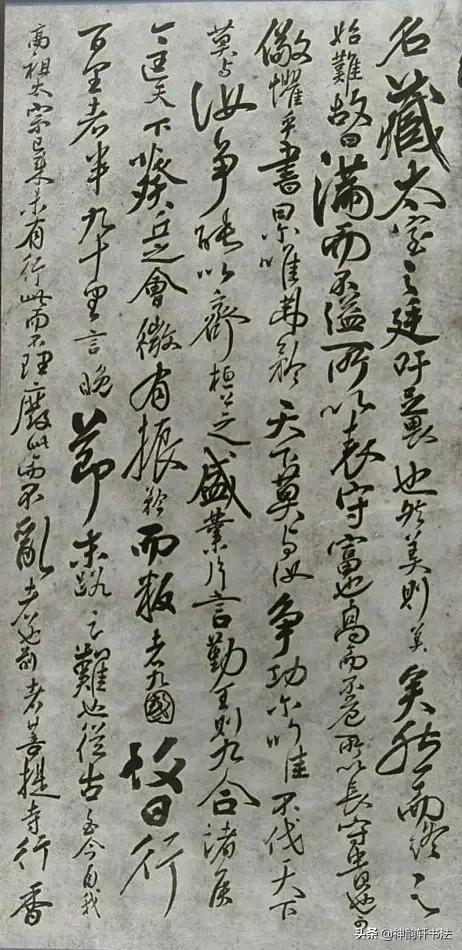 名藏太室之廷吁足畏也然美則美矣然而終之
始難故曰滿而不溢所以長守富也高而不危所以長守貴也可
儆懼乎書曰尔唯弗矜天下莫与汝争功尔唯不伐天下
莫与汝争能以齊桓公之盛業片言勤王則九合諸侯
一匡天下葵丘之會微有振矜而叛者九國故曰行
百里者半九十里言晚節末路之難也從古至今自我
高祖太宗已来未有行此而不理廢此而不亂者也前者菩提寺行香
头条 @神韵轩书法